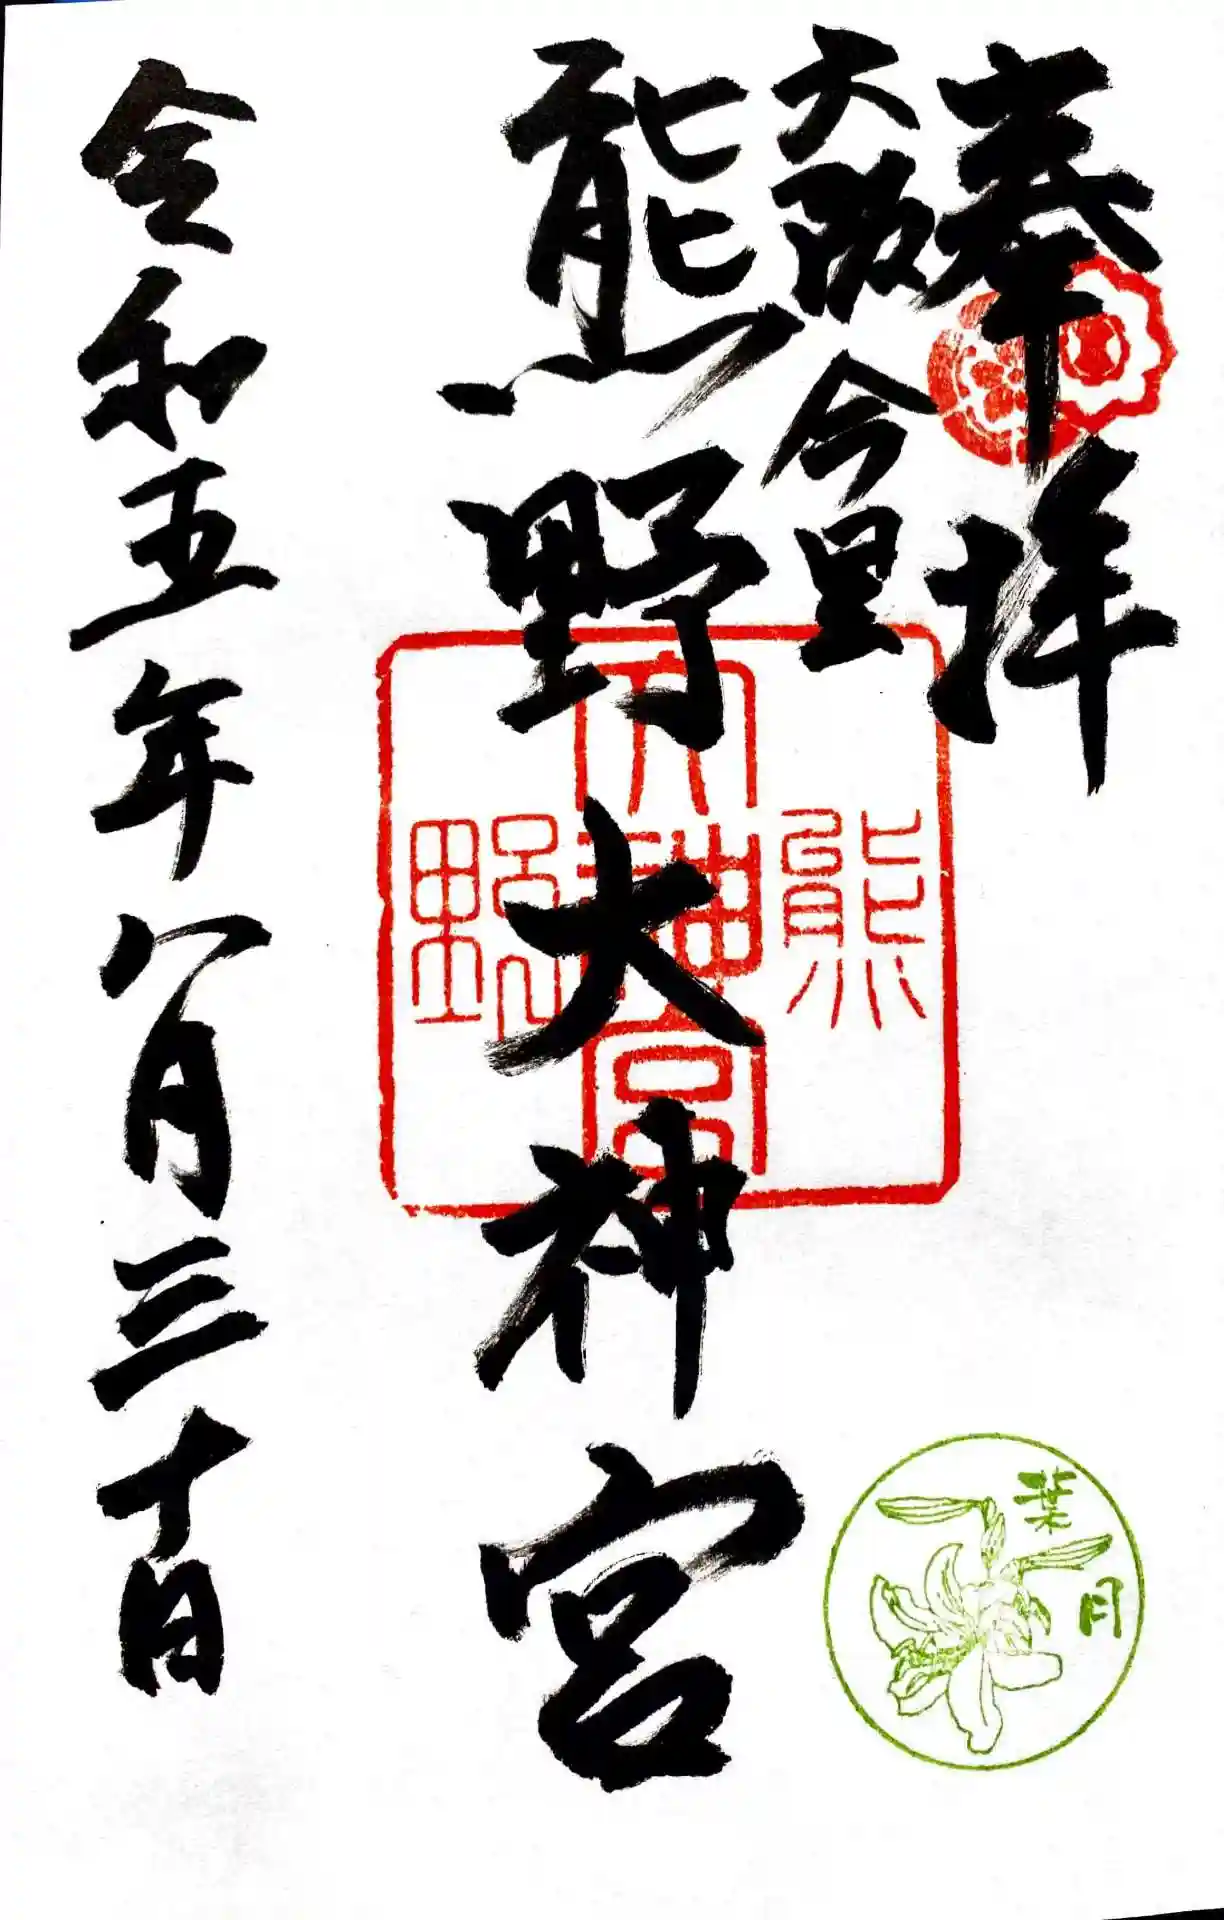 奉拝
大阪今里
熊野大神宮
令和五年八月三十日
熊野大神宮
葉月